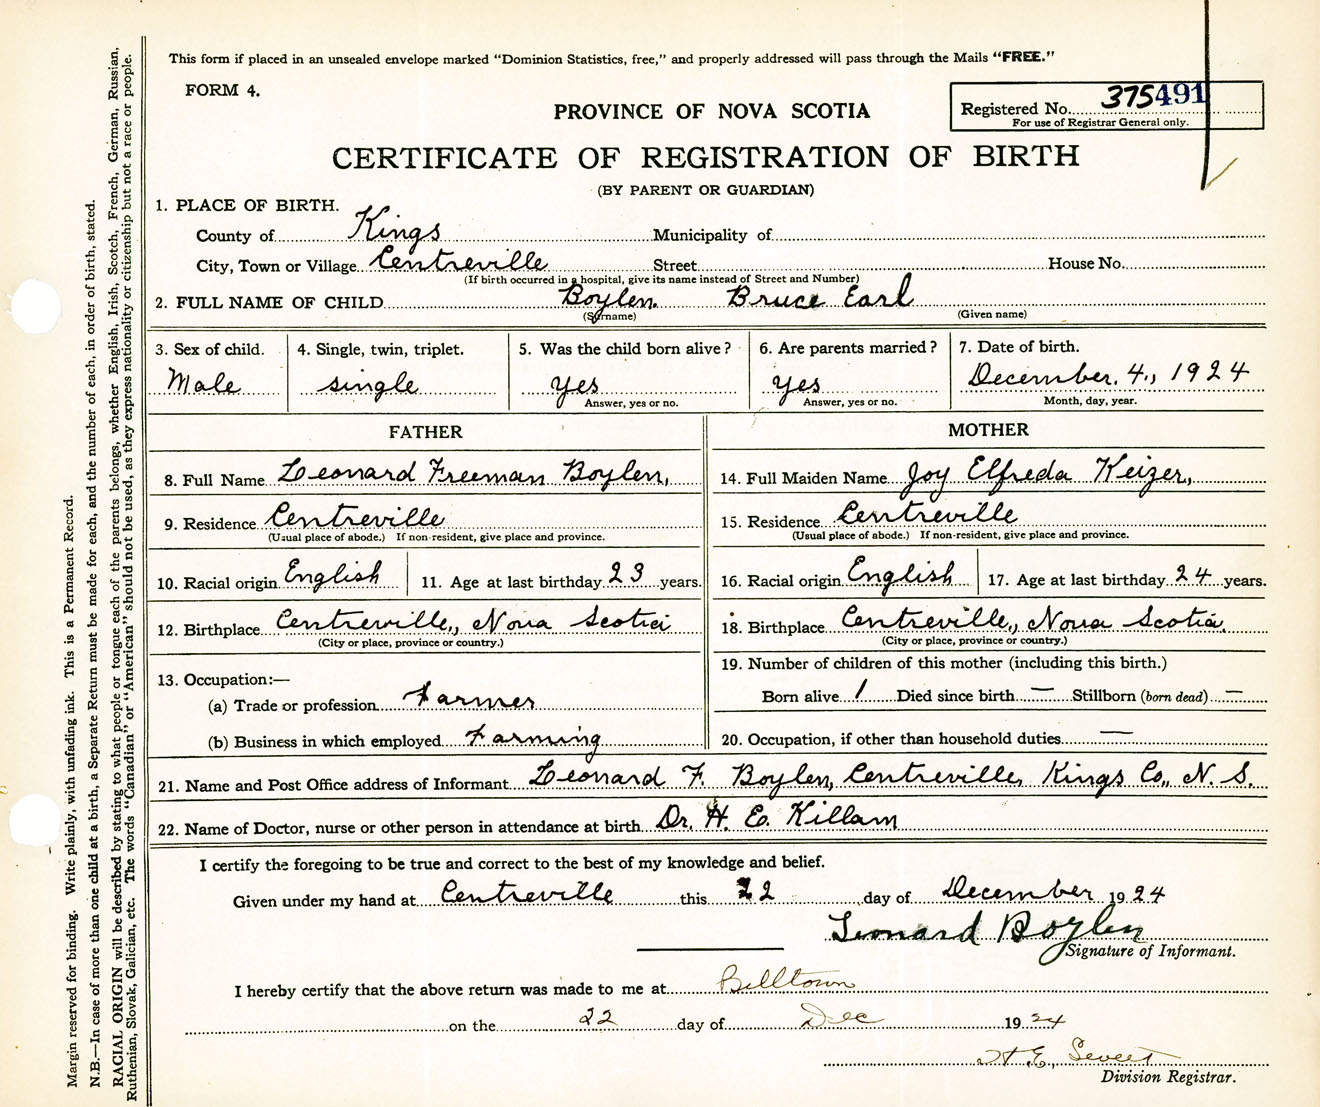 This form if placed in an unsealed envelope marked "Dominion Statistics, free," and properly addressed will pass through the Mails "FREE."
FORM 4.
PROVINCE OF NOVA SCOTIA
Registered No. 375491
For use of Registrar General only.
CERTIFICATE OF REGISTRATION OF BIRTH
(BY PARENT OR GUARDIAN)
1. PLACE OF BIRTH.
County of Kings Municipality of
City, Town or Village Centreville Street House No.
(If birth occurred in a hospital, give its name instead of Street and Number)
2. FULL NAME OF CHILD Boylen, Bruce Earl
(Surname) (Given name)
3. Sex of child. 4. Single, twin, triplet. 5. Was the child born alive? 6. Are parents married? 7. Date of birth.
Male single yes yes December. 4., 1924
Answer, yes or no. Answer, yes or no. Month, day, year.
FATHER MOTHER
8. Full Name Leonard Freeman Boylen, 14. Full Maiden Name Joy Elfreda Keizer,
9. Residence Centreville 15. Residence Centreville
(Usual place of abode.) If non-resident, give place and province. (Usual place of abode.) If non-resident, give place and province.
10. Racial origin English 11. Age at last birthday 23 years. 16. Racial origin English 17. Age at last birthday 24 years.
12. Birthplace Centreville, Nova Scotia 18. Birthplace Centreville, Nova Scotia.
(City or place, province or country.) (City or place, province or country.)
19. Number of children of this mother (including this birth.)
13. Occupation:—
Born alive 1 Died since birth — Stillborn (born dead) —
(a) Trade or profession Farmer
(b) Business in which employed Farming 20. Occupation, if other than household duties —
21. Name and Post Office address of Informant Leonard F. Boylen, Centreville, Kings Co., N. S.
22. Name of Doctor, nurse or other person in attendance at birth Dr. H. E. Killam
I certify the foregoing to be true and correct to the best of my knowledge and belief.
Given under my hand at Centreville this 22 day of December 1924
Leonard Boylen
Signature of Informant.
I hereby certify that the above return was made to me at Billtown
on the 22 day of Dec 1924
H. E.
Division Registrar.
Margin reserved for binding. Write plainly, with unfading ink. This is a Permanent Record.
N.B.—In case of more than one child at a birth, a Separate Return must be made for each, and the number of each, in order of birth, stated.
RACIAL ORIGIN will be described by stating to what people or tongue each of the parents belongs, whether English, Irish, Scotch, French, German, Russian,
Ruthenian, Slovak, Galician, etc. The words "Canadian" or "American" should not be used, as they express nationality or citizenship but not a race or people.